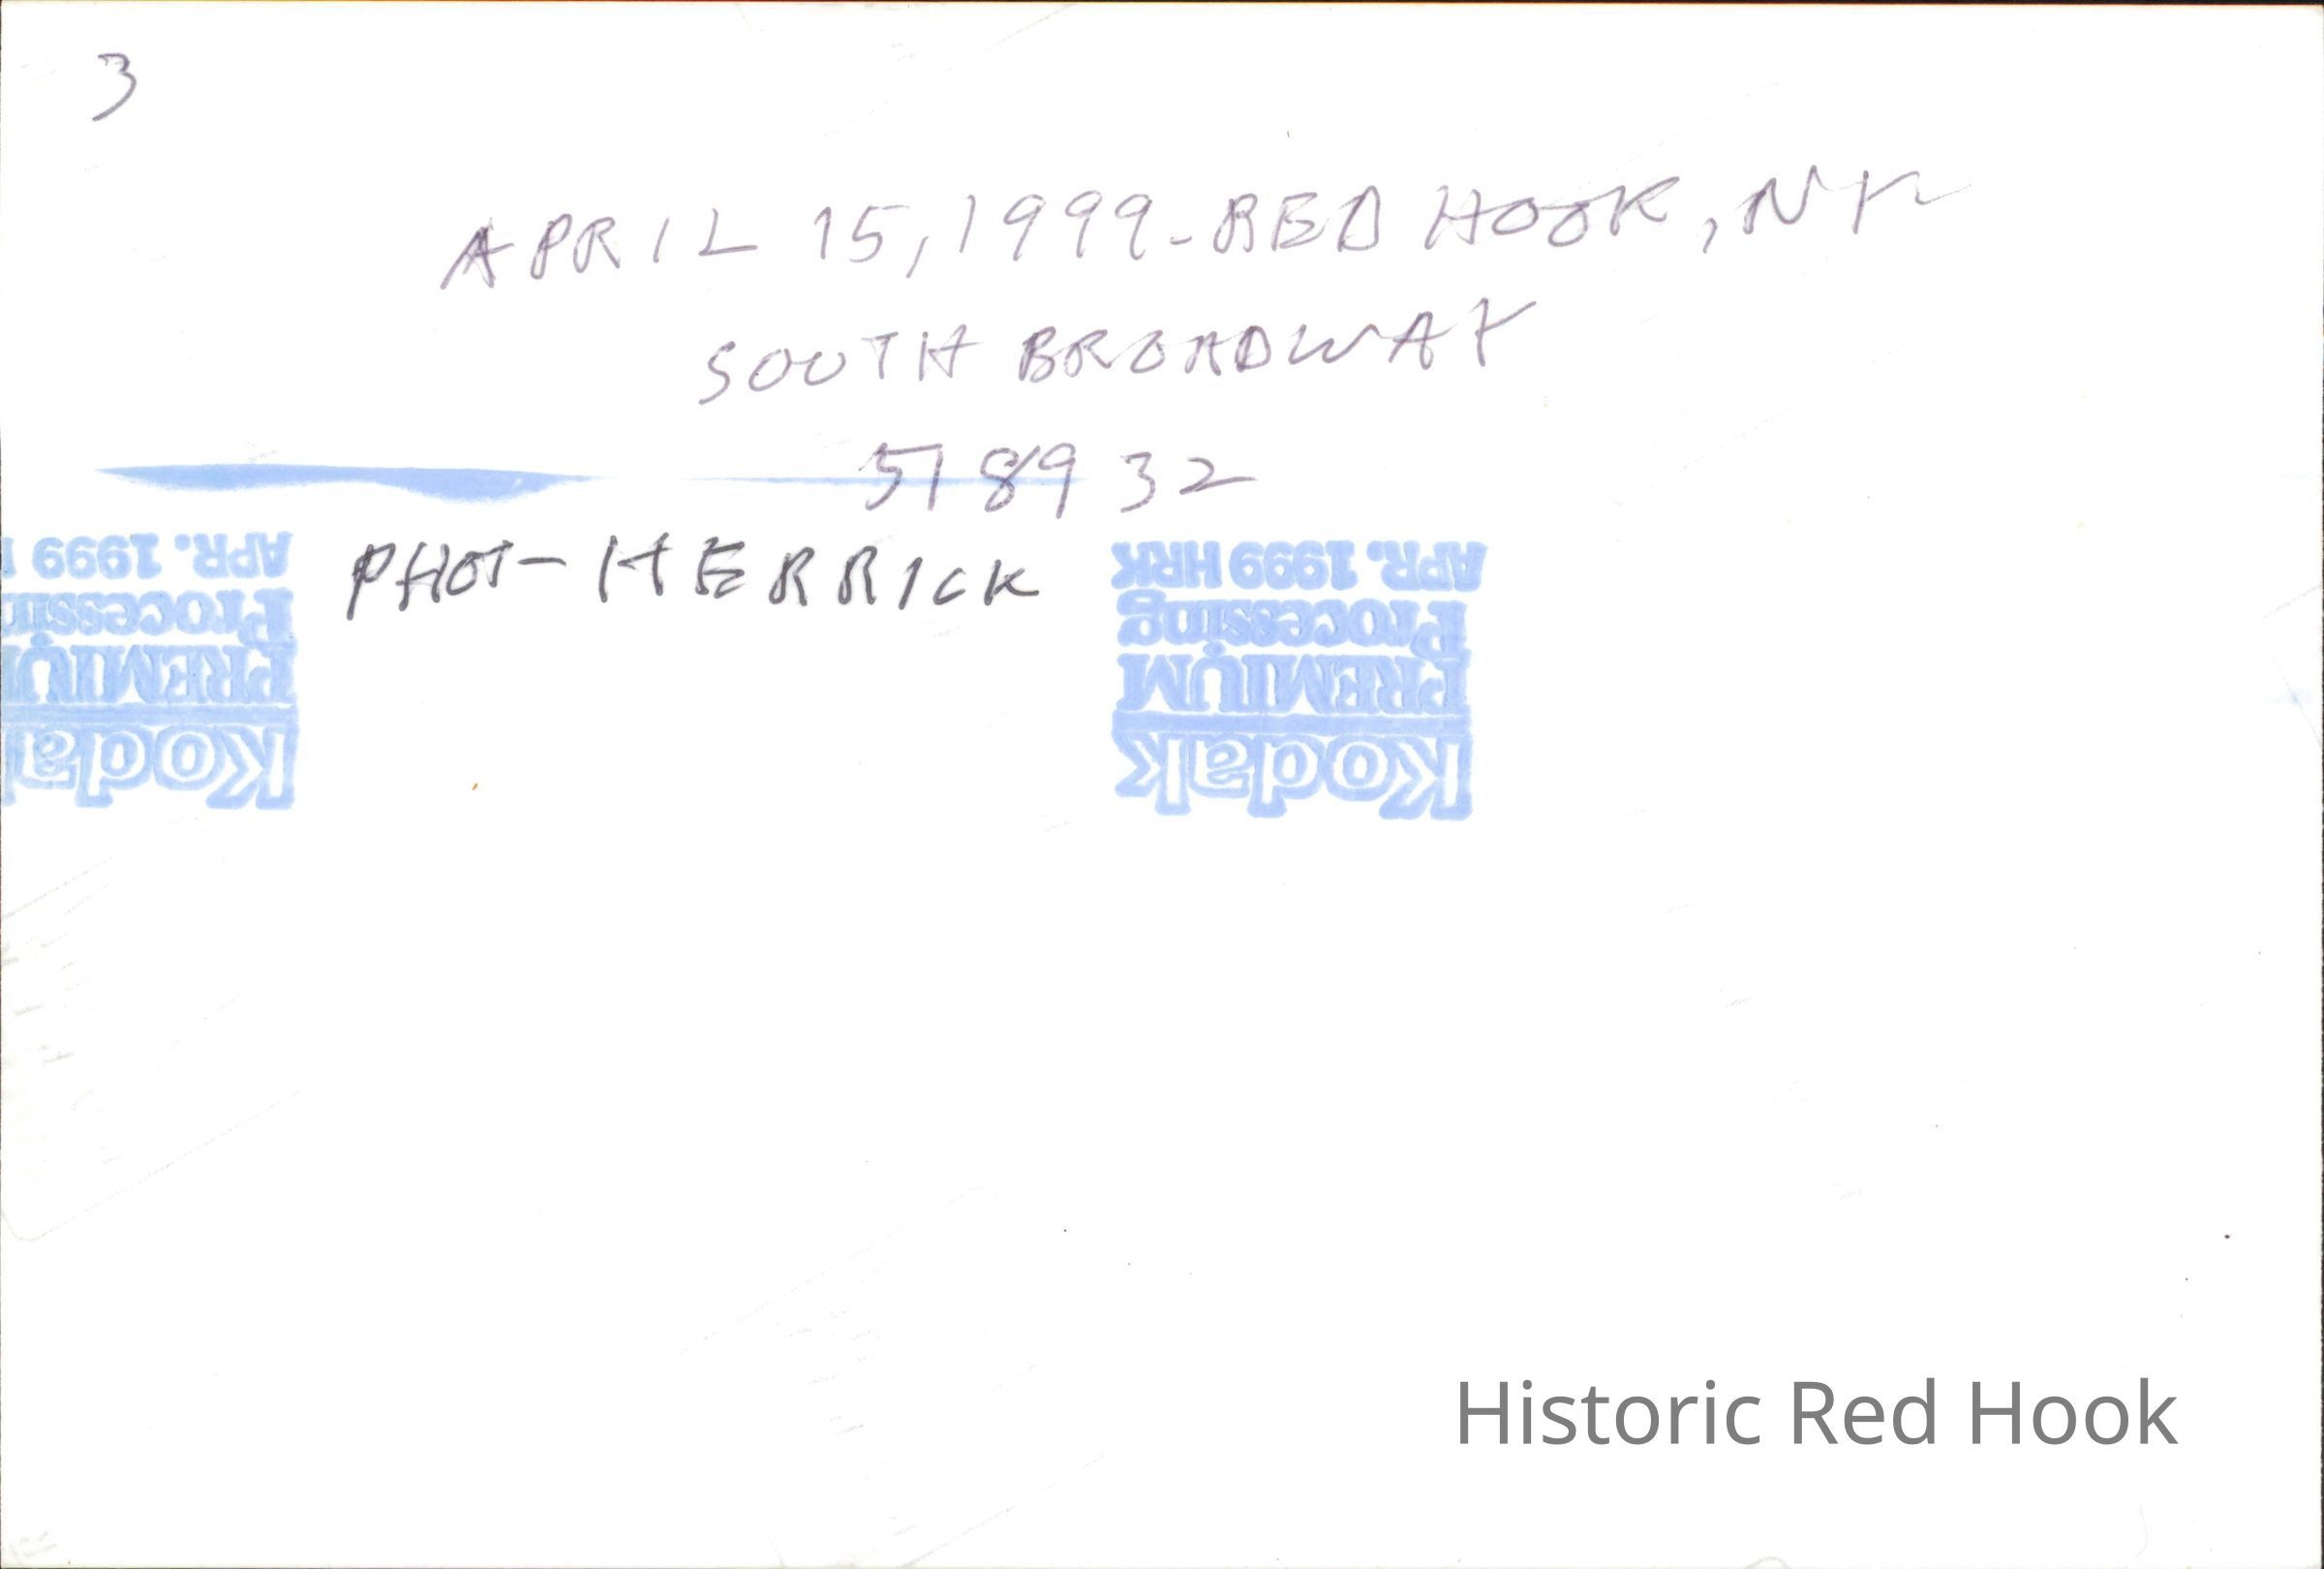 3
APRIL 15, 1999 - RED HOOK, NY
SOUTH BROADWAY
518932
PHOT - HERRICK
APR. 1999
Processin
PREMIU
Koda
APR. 1999 HRK
Processing
PREMIUM
Kodak
Historic Red Hook